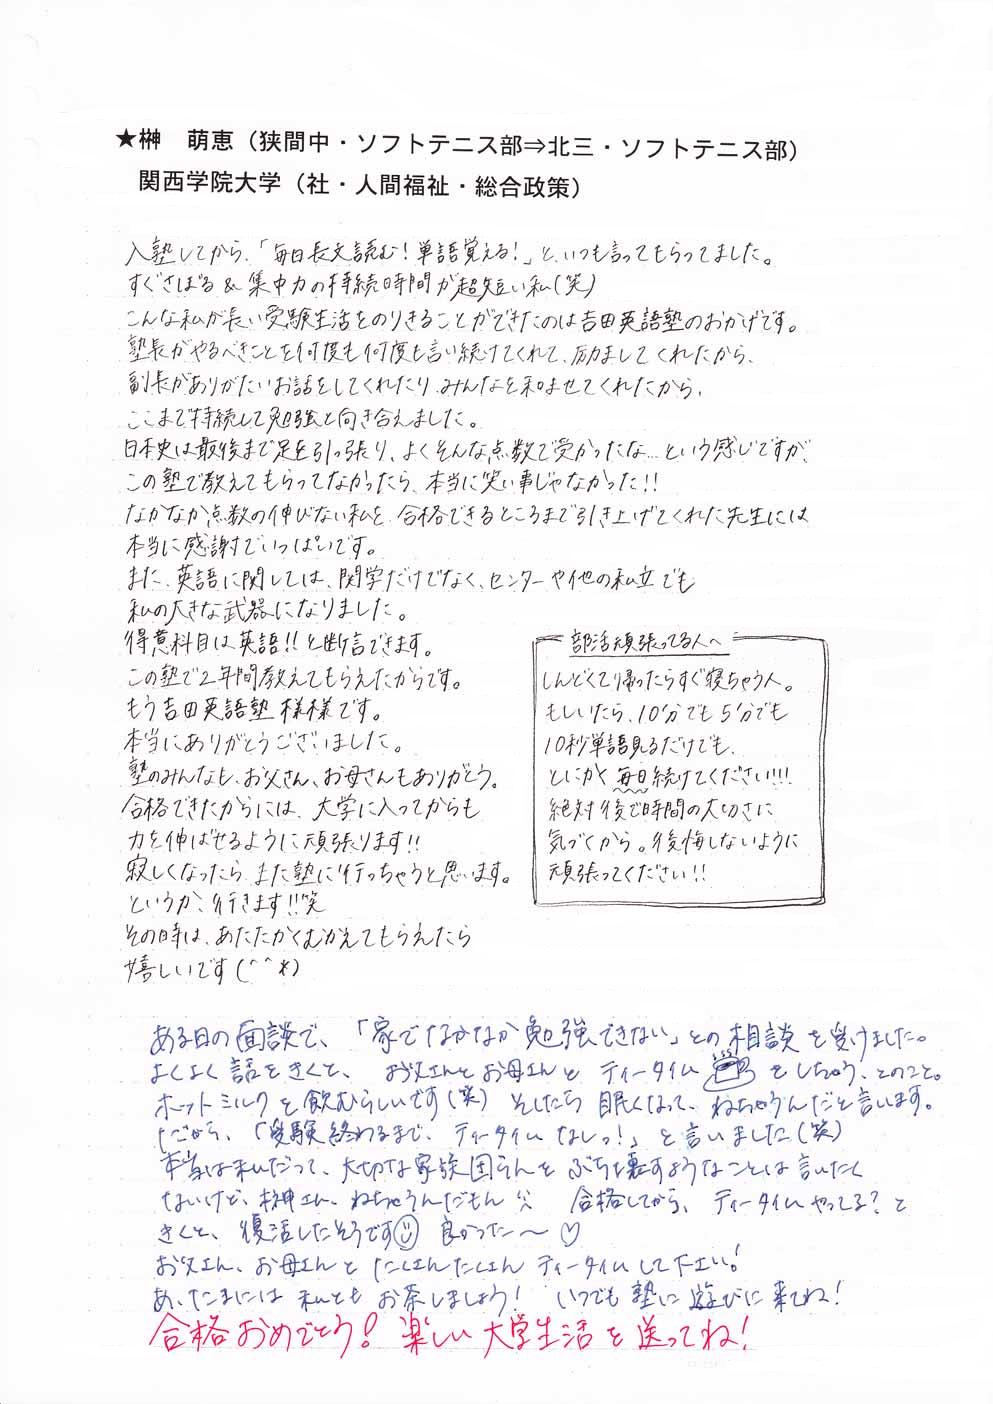 ★榊　萌恵（狭間中・ソフトテニス部⇒北三・ソフトテニス部）
関西学院大学（社・人間福祉・総合政策）
入塾してから、「毎日長文読む！単語覚える！」と、いつも言ってもらってました。
すぐさぼる＆集中力の持続時間が超短い私(笑)
こんな私が長い受験生活をのりきることができたのは吉田英語塾のおかげです。
塾長がやるべきことを何度も何度も言い続けてくれて、励ましてくれたから、
副長がありがたいお話をしてくれたり、みんなを和ませてくれたから、
ここまで持続して勉強と向き合えました。
日本史は最後まで足を引っ張り、よくそんな点数で受かったな…という感じですが、
この塾で教えてもらってなかったら、本当に笑い事じゃなかった!!
なかなか点数の伸びない私を、合格できるところまで引き上げてくれた先生には
本当に感謝でいっぱいです。
また、英語に関しては、関学だけでなく、センターや他の私立でも
私の大きな武器になりました。
得意科目は英語!!と断言できます。
この塾で2年間教えてもらえたからです。
もう吉田英語塾様様です。
本当にありがとうございました。
塾のみんなも、お父さん、お母さんもありがとう。
合格できたからには、大学に入ってからも
力を伸ばせるように頑張ります!!
寂しくなったら、また塾に行っちゃうと思います。
というか、行きます!!笑
その時は、あたたかくむかえてもらえたら
嬉しいです(^^*)
部活頑張ってる人へ
しんどくて帰ったらすぐ寝ちゃう人。
もしいたら、10分でも5分でも
10秒単語見るだけでも、
とにかく毎日続けてください!!!
絶対後で時間の大切さに
気づくから。後悔しないように
頑張ってください!!
ある日の面談で、「家でなかなか勉強できない」との相談を受けました。
よくよく話をきくと、お父さんとお母さんとティータイムをしちゃう、とのこと。
ホットミルクを飲むらしいです(笑)そしたら眠くなって、ねちゃうんだと言います。
だから、「受験終わるまで、ティータイムなしっ！」と言いました(笑)
本当は私だって、大切な家族団らんをぶち壊すようなことは言いたく
ないけど、榊さん、ねちゃうんだもん　合格してから、ティータイムやってる？と
きくと、復活したそうです　良かった〜♡
お父さん、お母さんとたくさんたくさんティータイムして下さい！
あ、たまには私ともお茶しましょう！いつでも塾に遊びに来てね！
合格おめでとう！楽しい大学生活を送ってね！